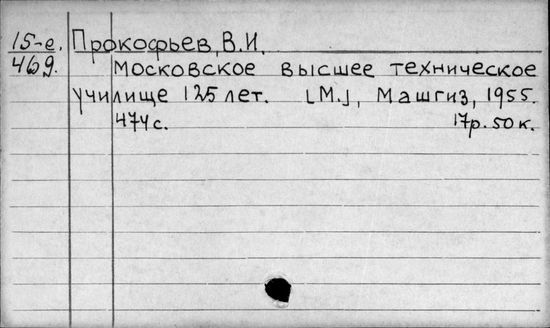 15-е. Прокофьев, В.И.
469. Московское высшее техническое
училище 125 лет. [М.], Машгиз, 1955.
474 с. 17р. 50 к.